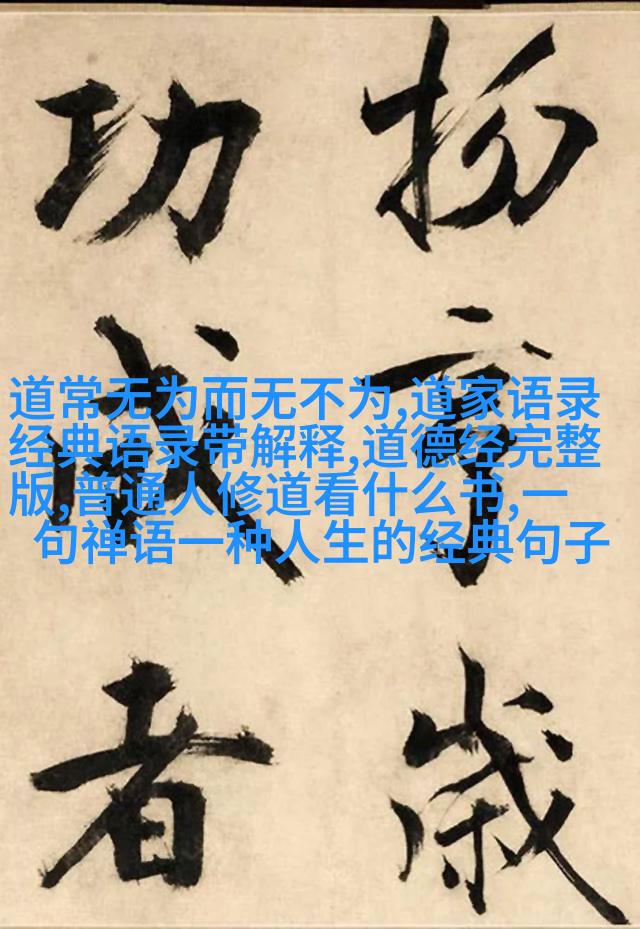 歲
功成者
道常无为而无不为,道家语录
经典语录带解释,道德经完整
版,普通人修道看什么书,一
句禅语一种人生的经典句子